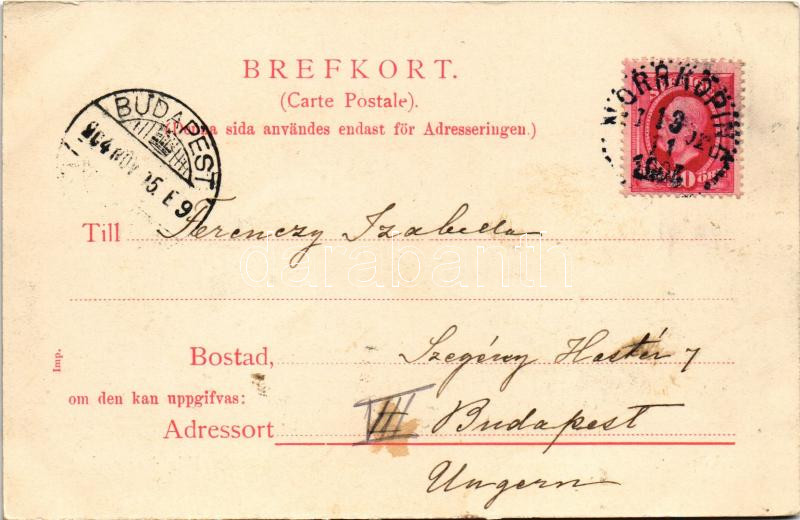 BREFKORT.
(Carte Postale).
(Denna sida användes endast för Adresseringen.)
BUDAPEST
904 NOV 15. E 9
NORRKÖPING
13
1904
Till Ferenczy Izabella
darabanth
Bostad, Szegény Hastér 7
om den kan uppgifvas:
Adressort III Budapest
Ungern
Imp.